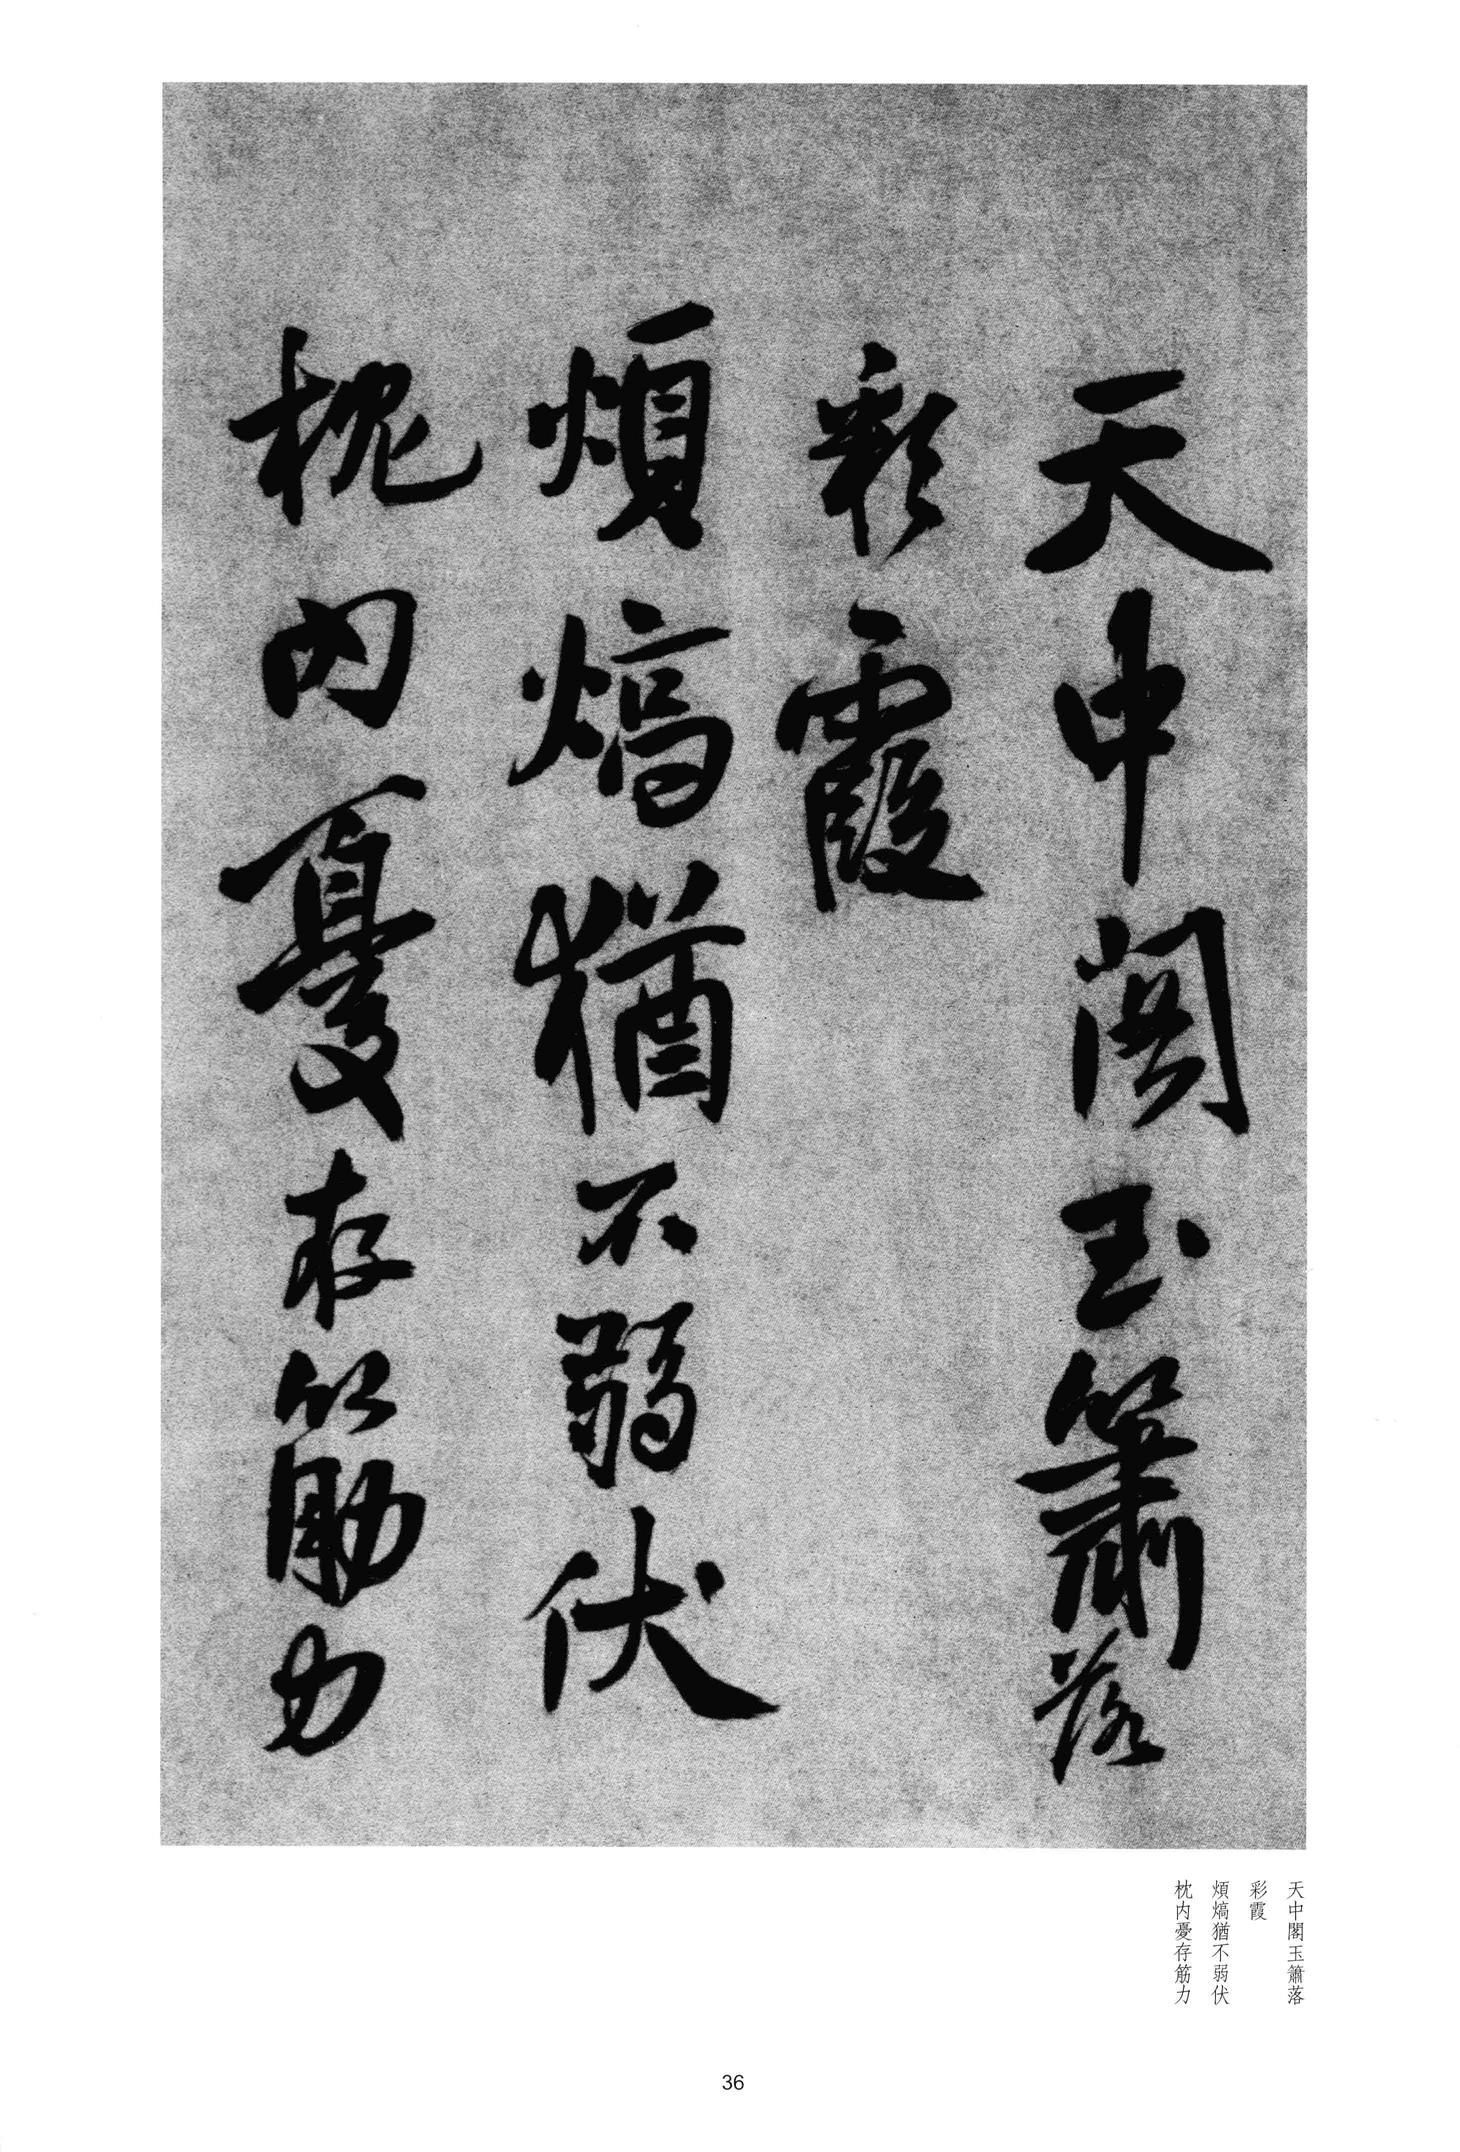 天中閣玉簫落
彩霞
煩熇猶不弱伏
枕内憂存筋力
天中閣玉簫落
彩霞
煩熇猶不弱伏
枕内憂存筋力
36